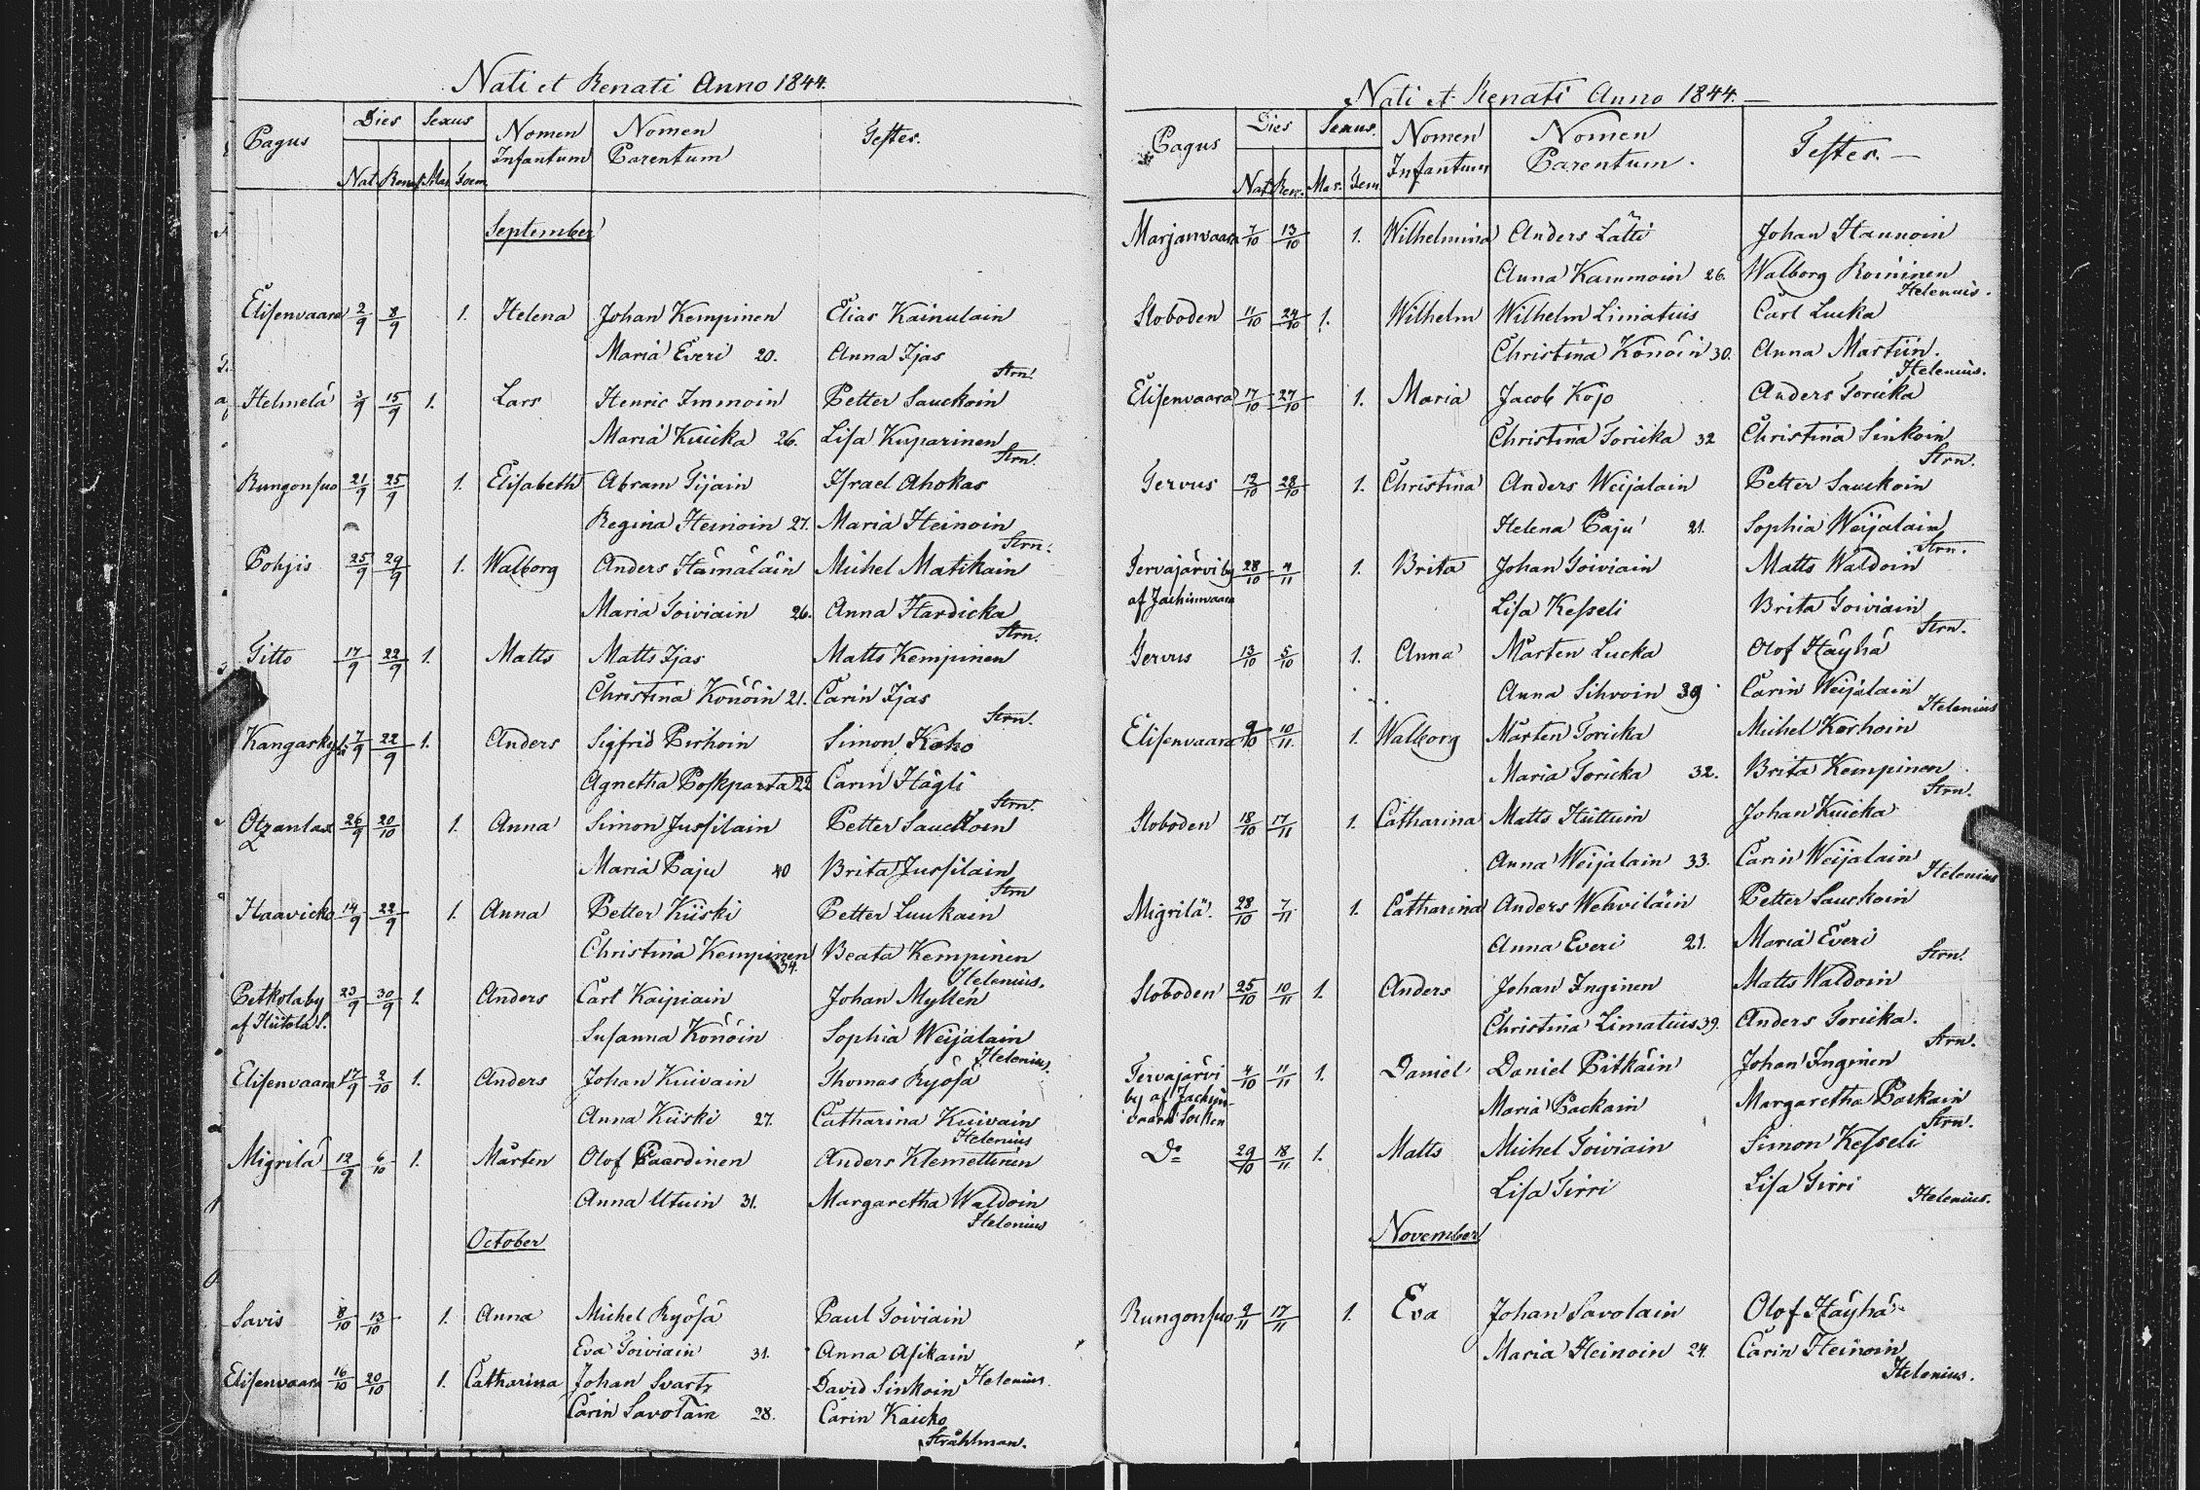 Nati et Renati Anno 1844.
Pagus Dies Sexus Nomen Infantum Nomen Parentum Testes.
Nat. Renat. Mas. Foem.
September
Elisenvaara 2/9 8/9 1. Helena Johan Kempinen Elias Kainulain
Maria Everi 20. Anna Ijas
Strn.
Helmelä 3/9 15/9 1. Lars Henric Immoin Petter Sauckoin
Maria Kuicka 26. Lisa Kuparinen
Strn.
Rungonsuo 21/9 25/9 1. Elisabeth Abram Tijain Israel Ahokas
Regina Heinoin 27. Maria Heinoin
Strn.
Pohjis 25/9 29/9 1. Walborg Anders Hämäläin Michel Matikain
Maria Toiviain 26. Anna Hardicka
Strn.
Titto 17/9 22/9 1. Matts Matts Ijas Matts Kempinen
Christina Könöin 21. Carin Ijas
Strn.
Kangaskylä 7/9 22/9 1. Anders Sigfrid Pirhoin Simon Koho
Agnetha Poskparta 22 Carin Hägli
Strn.
Otzanlax 26/9 20/10 1. Anna Simon Jussilain Petter Sauckoin
Maria Paju 40 Brita Jussilain
Strn
Haavicko 14/9 22/9 1. Anna Petter Kiiski Petter Luukain
Christina Kempinen 34. Beata Kempinen
Helenius.
Petkolaby 23/9 30/9 1. Anders Carl Kaipiain Johan Myllén
af Hiitola S. Susanna Könöin Sophia Weijalain
Helenius.
Elisenvaara 17/9 2/10 1. Anders Johan Kuivain Thomas Ryösä
Anna Kiiski 27. Catharina Kuivain
Helenius
Migrilä 12/9 6/10 1. Mårten Olof Paardinen Anders Klemettinen
Anna Utuin 31. Margaretha Waldoin
Helenius
October
Savis 8/10 13/10 1. Anna Michel Ryösä Paul Toiviain
Eva Toiviain 31. Anna Asikain
Helenius
Elisenvaara 16/10 20/10 1. Catharina Johan Svartz David Sinkoin
Carin Savolain 28. Carin Kaicko
Stråhlman.
Nati et Renati Anno 1844.
Pagus Dies Sexus. Nomen Infantum Nomen Parentum. Testes.
Nat. Ren. Mas. Fem.
Marjanvaara 7/10 13/10 1. Wilhelmina Anders Lätti Johan Hannoin
Anna Kammoin 26. Walborg Roininen
Helenius.
Sloboden 11/10 24/10 1. Wilhelm Wilhelm Limatius Carl Lucka
Christina Könöin 30. Anna Martiin.
Helenius.
Elisenvaara 17/10 27/10 1. Maria Jacob Kojo Anders Toricka
Christina Toricka 32 Christina Sinkoin
Strn.
Tervus 12/10 28/10 1. Christina Anders Weijalain Petter Sauckoin
Helena Paju 21. Sophia Weijalain
Strn.
Tervajärvi by 28/10 4/11 1. Brita Johan Toiviain Matts Waldoin
af Jachimvaara Lisa Kesseli Brita Toiviain
Strn.
Tervus 13/10 5/10 1. Anna Mårten Lucka Olof Häyhä
Anna Sihvoin 39 Carin Weijalain
Helenius
Elisenvaara 9/10 10/11 1. Walborg Mårten Toricka Michel Korhoin
Maria Toricka 32. Brita Kempinen
Strn.
Sloboden 18/10 17/11 1. Catharina Matts Hüttuin Johan Kuicka
Anna Weijalain 33. Carin Weijalain
Helenius
Migrilä. 28/10 7/11 1. Catharina Anders Wehviläin Petter Sauckoin
Anna Everi 21. Maria Everi
Strn.
Sloboden 25/10 10/11 1. Anders Johan Inginen Matts Waldoin
Christina Limatius 39. Anders Toricka.
Strn.
Tervajärvi 4/10 11/11 1. Daniel Daniel Pitkäin Johan Inginen
by af Jachim- Maria Packain Margaretha Packain
vaara Socken Strn.
Do 29/10 18/11 1. Matts Michel Toiviain Simon Kesseli
Lisa Tirri Lisa Tirri
Helenius.
November
Rungonsuo 9/11 17/11 1. Eva Johan Savolain Olof Häyhä
Maria Heinoin 24. Carin Heinoin
Helenius.